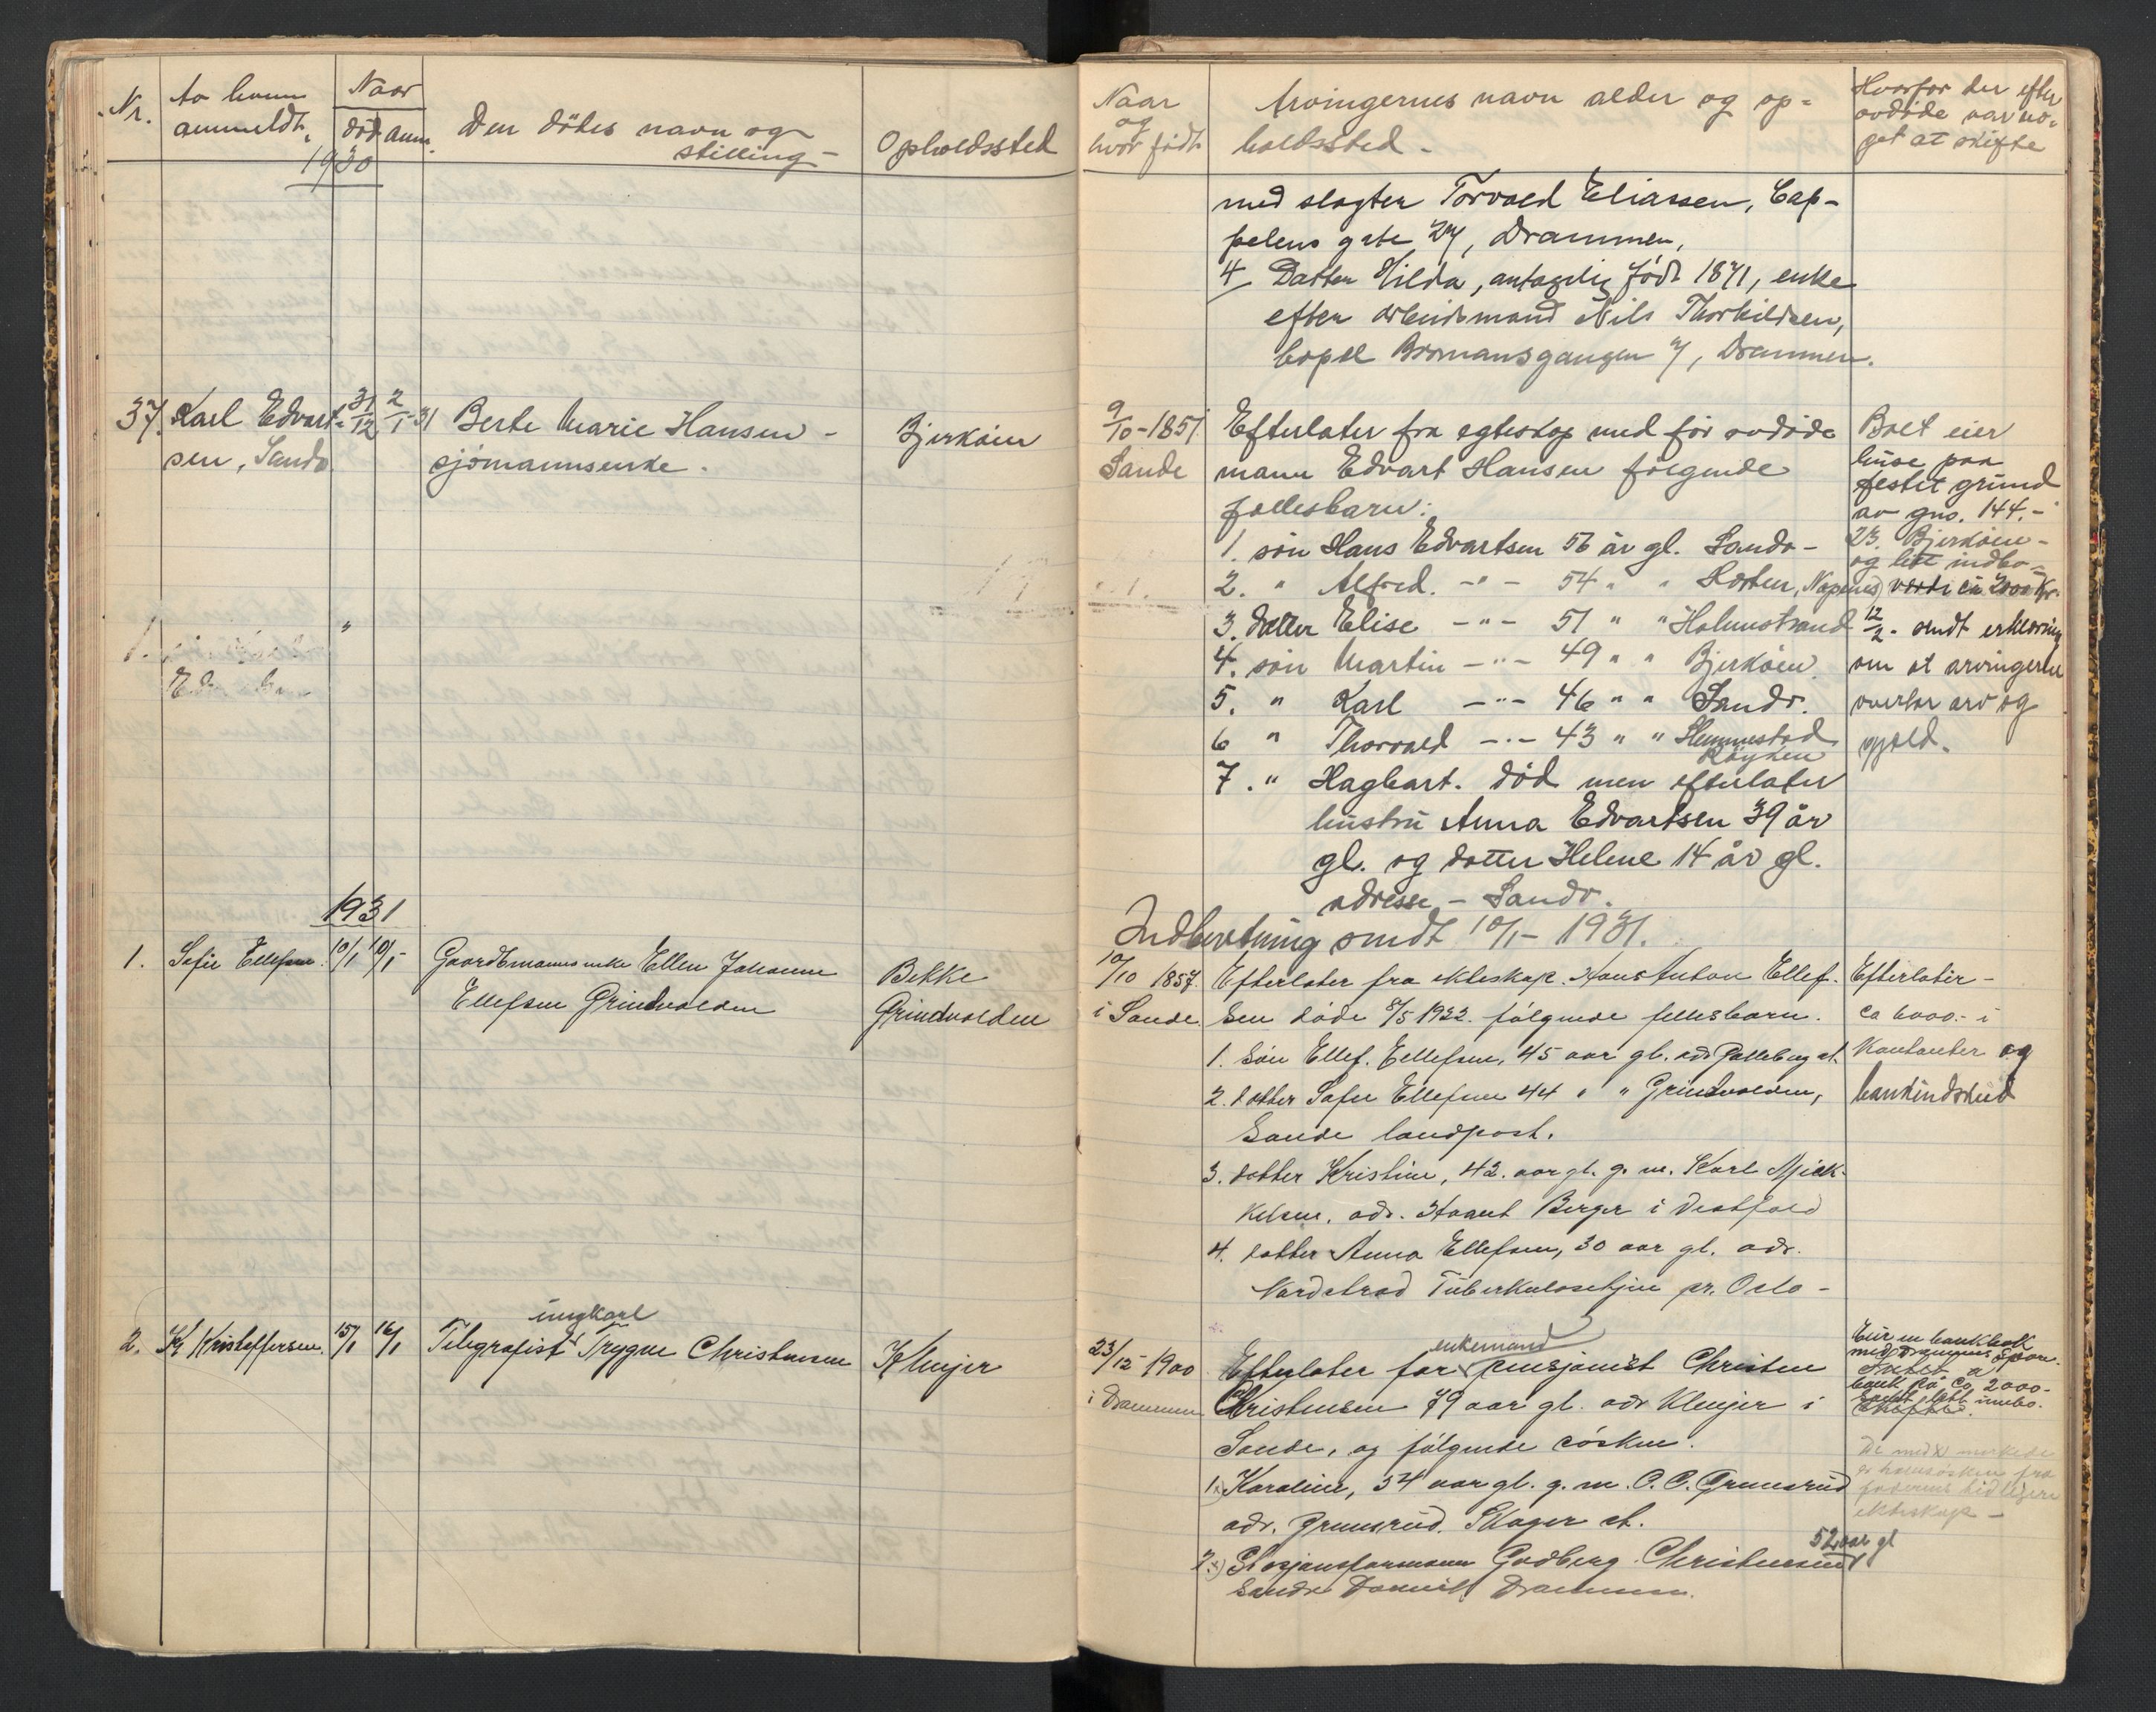 Nr.
Av hvem
anmeldt.
Naar
død
anm.
Den dödes navn og
stilling -
Opholdssted
Naar
og
hvor födt
Arvingernes navn alder og op=
holdssted -
Hvorfor der efter
avdöde var no=
get at skifte
1930
med slagter Torvald Eliassen, Cap-
pelens gate 27, Drammen,
4/ Datter Hilda, antagelig född 1871, enke
efter arbeidsmand Nils Thorkildsen,
bopel Bromansgangen 7, Drammen.
37. Karl Edvart-
sen, Sande
31/12
2/1-31
Berte Marie Hansen -
sjömannsenke.
Bjerköien
9/10-1851
Sande
Efterlater fra egteskap med för avdöde
mann Edvart Hansen fölgende
fellesbarn:
1. sön Hans Edvartsen 56 år gl. Sande -
2. " Alfred. -"- 54 " " Horten, Nopenes
3. datter Elise -"- 51 " " Holmestrand
4. sön Martin -"- 49 " " Bjerköien.
5. " Karl -"- 46 " " Sande.
6 " Thorvald -"- 43 " " Slemmestad
Röyken
7. " Hagbart. död men efterlater
hustru Anna Edvartsen 39 år
gl. og datter Helene 14 år gl.
adresse - Sande.
Boet eier
huse paa
festet grund
av gno. 144.-
23. Bjerköien -
og litt indbo -
verdi ca 2000 Kr.
12/2 - sendt erklæring
om at arvingerne
overtar arv og
gjeld.
Indberetning sendt 10/1 - 1931.
1931
1. Sofie Ellefsen.
10/1
10/1
Gaardbmannsenke Ellen Johanne
Ellefsen Grindvolden
Bekke
Grindvolden
10/10 1857.
i Sande.
Efterlater fra ekteskap. Hans Anton Ellef-
sen döde 8/5 1922. fölgende fellesbarn.
1. Sön Ellef. Ellefsen, 45 aar gl. adr Galleberg st.
2. datter Sofie Ellefsen 44 " " Grindvolden,
Sande landpost.
3. datter Kristine, 42. aar gl. g. m. Karl Mick-
kelsen, adr. Haant Berger i Vestfold
4. datter Anna Ellefsen, 30 aar gl. adr.
Nordstrad Tuberkulosehjem pr. Oslo -
Efterlater -
ca 6000.- i
Kontanter og
bankindskud
2. Kr Kristoffersen.
15/1
16/1
ungkarl
Telegrafist Trygve Christensen
Klevjer
23/12-1900
i Drammen
enkemand
Efterlater far pensjonist Christen
Christensen 79 aar gl. adr Klevjer i
Sande, og fölgende cösken.
1x) Karoline, 54 aar gl. g. m. O. C. Grunsrud
adr. Grunsrud. Skoger st.
52 aar gl
2.x) Stasjonsformann Godberg Christensen
Sandre Drammen.
Eier en bankbok
med Drammens Spare-
bank på ca 2000.-
samt litt innbo.
De med x merkede
er halvsösken fra
faderens tidligere
ekteskap -